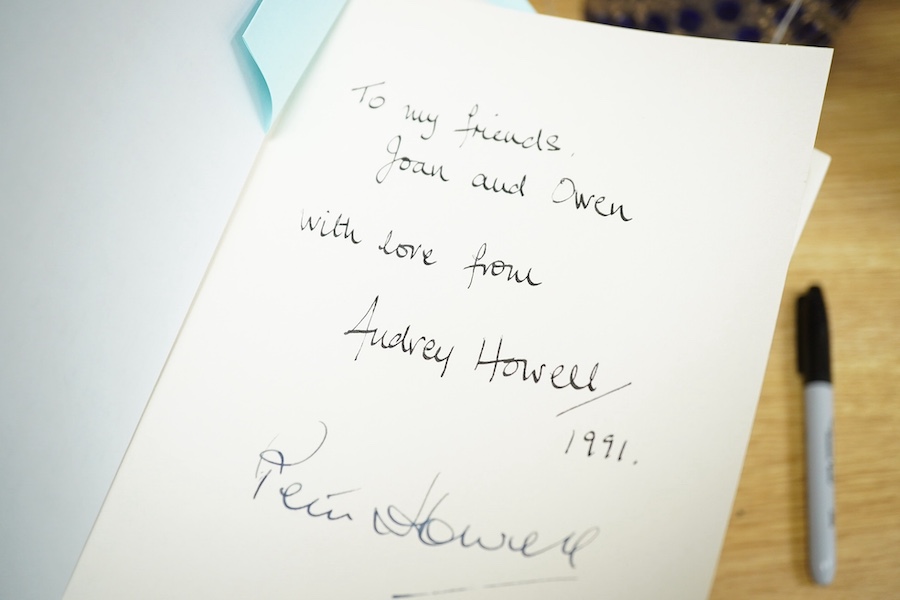 To my friends.
Joan and Owen
with love from
Audrey Howell
1991.
Howell